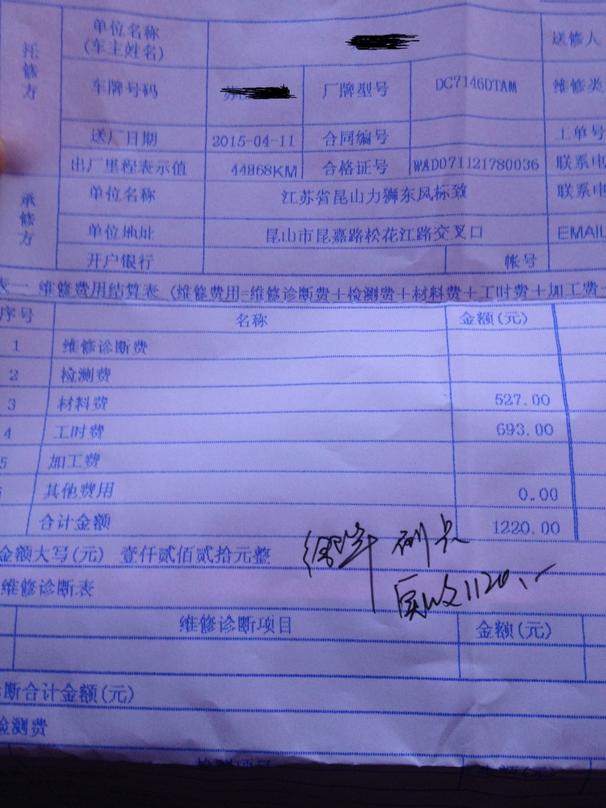 托修方
单位名称
(车主姓名)
送修人
车牌号码
厂牌型号 DC7146DTAM 维修类
送厂日期 2015-04-11 合同编号 工单号
出厂里程表示值 44868KM 合格证号 WAD071121780036 联系电
承修方
单位名称 江苏省昆山力狮东风标致 联系电
单位地址 昆山市昆嘉路松花江路交叉口 EMAIL
开户银行 帐号
表一 维修费用结算表 (维修费用=维修诊断费+检测费+材料费+工时费+加工费
序号 名称 金额(元)
1 维修诊断费
2 检测费
3 材料费 527.00
4 工时费 693.00
5 加工费
其他费用 0.00
合计金额 1220.00
金额大写(元) 壹仟贰佰贰拾元整
实收1120.-
维修诊断表
维修诊断项目 金额(元)
断合计金额(元)
检测费